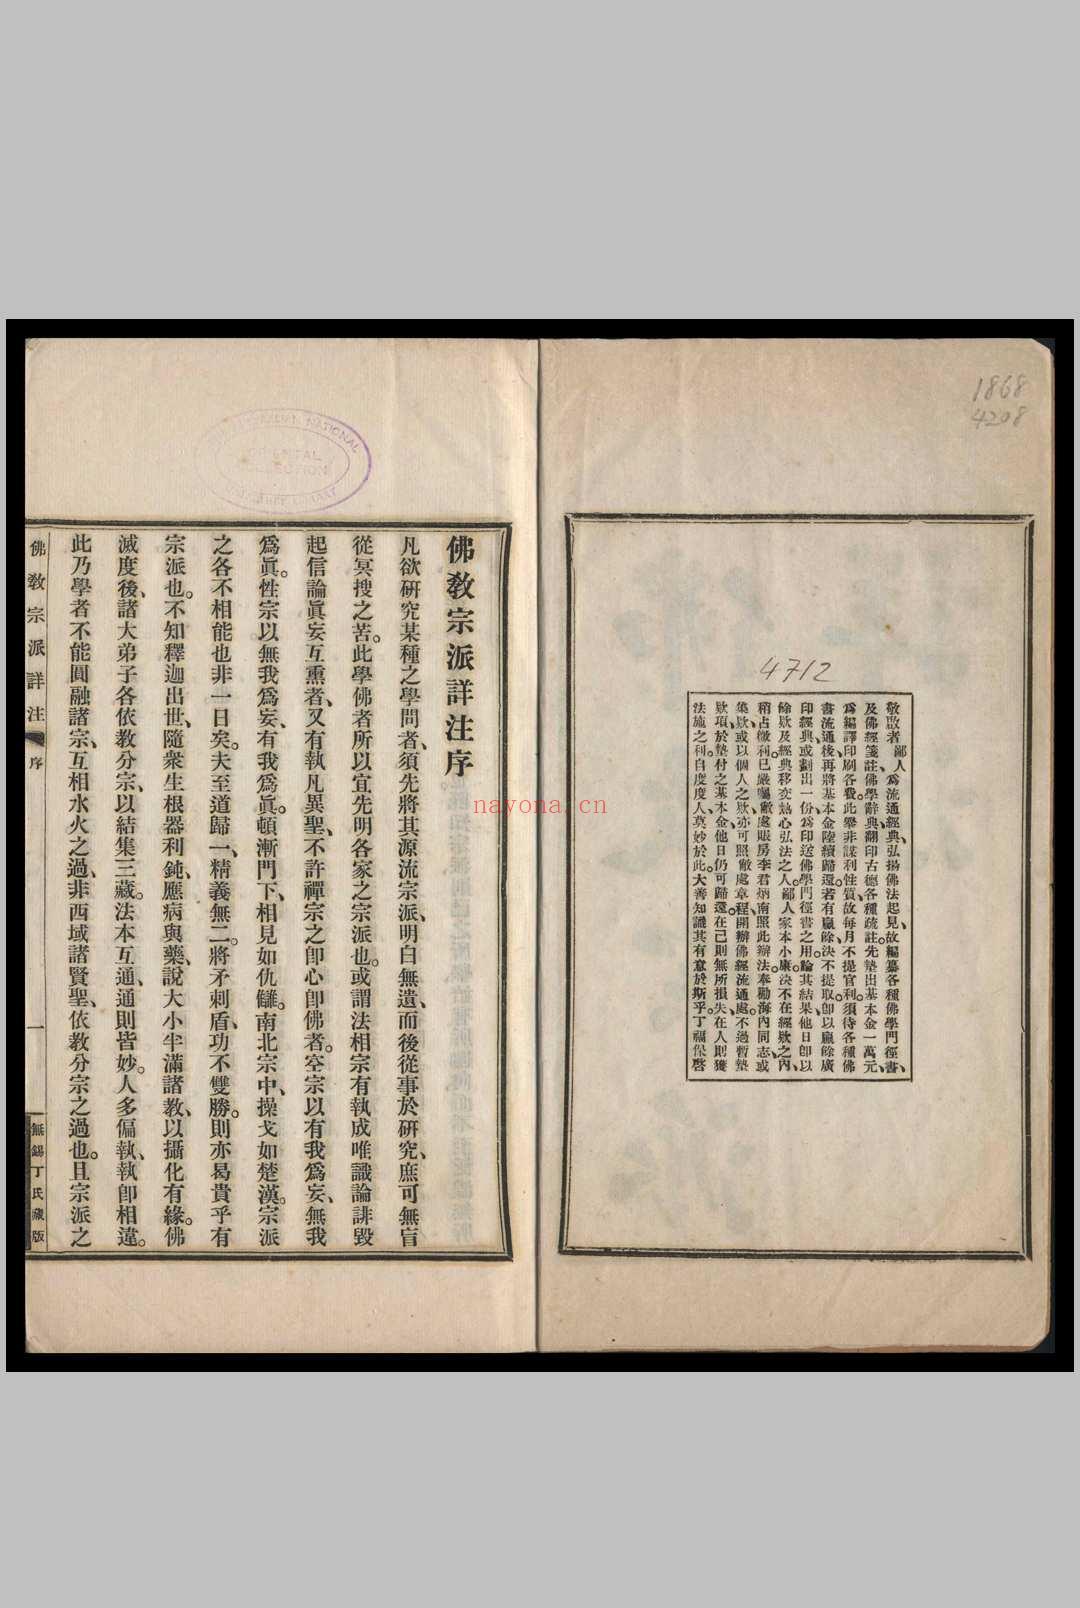 1868
4208
4712
敬啟者鄙人爲流通經典弘揚佛法起見故編纂各種佛學門徑書、
及佛經箋註、佛學辭典、翻印古德各種疏註、先墊出基本金一萬元、
爲編譯印刷各費。此舉非謀利性質、故每月不提官利、須待各種佛
書流通後、再將基本金陸續歸還、若有贏餘、決不提取、卽以贏餘廣
印經典、或劃出一份、爲印送佛學門徑書之用。論其結果、他日卽以
餘欵及經典移交熱心弘法之人。鄙人家本小康、決不在經欵之內、
稍占微利。已嚴囑敝處賬房李君炳南照此辦法。奉勸海內同志、或
集欵、或以個人之欵、亦可照敝處章程、開辦佛經流通處。不過暫墊
欵項、於墊付之基本金、他日仍可歸還、在己則無所損失、在人則獲
法施之利。自度度人、莫妙於此。大善知識其有意於斯乎。丁福保啓
佛教宗派詳注序
凡欲硏究某種之學問者、須先將其源流宗派、明白無遺、而後從事於硏究、庶可無盲
從冥搜之苦。此學佛者所以宜先明各家之宗派也。或謂法相宗有執成唯識論誹毀
起信論眞妄互熏者、又有執凡異聖、不許禪宗之卽心卽佛者。空宗以有我爲妄、無我
爲眞。性宗以無我爲妄、有我爲眞。頓漸門下、相見如仇讎。南北宗中、操戈如楚漢。宗派
之各不相能也非一日矣。夫至道歸一、精義無二。將矛刺盾、功不雙勝。則亦曷貴乎有
宗派也。不知釋迦出世、隨衆生根器利鈍、應病與藥、說大小半滿諸教、以攝化有緣。佛
滅度後、諸大弟子各依教分宗、以結集三藏。法本互通、通則皆妙。人多偏執、執卽相違。
此乃學者不能圓融諸宗、互相水火之過、非西域諸賢聖、依教分宗之過也。且宗派之
佛教宗派詳注
序
一
無錫丁氏藏版
NATIONAL
ORIENTAL
COLLECTION
nayona.cn